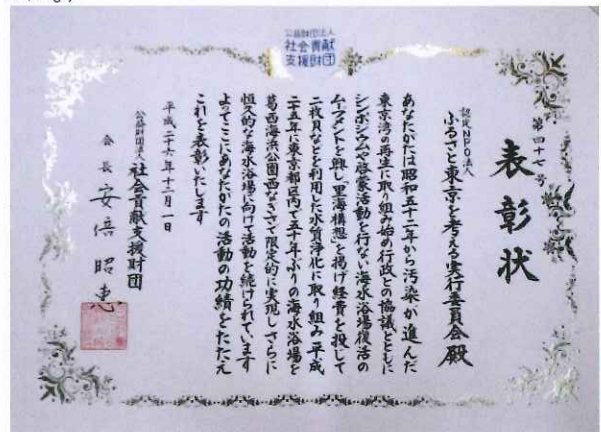 公益財団法人
社会貢献
支援財団
第四十七号
表彰状
認定NPO法人
ふるさと東京を考える実行委員会 殿
あなたがたは昭和五十二年から汚染が進んだ
東京湾の再生に取り組み始め行政との協議とともに
シンポジウムや啓蒙活動を行ない海水浴場復活の
ムーブメントを興し「里海構想」を掲げ経費を投じて
二枚貝などを利用した水質浄化に取り組み平成
二十五年に東京都区内で五十年ぶりの海水浴場を
葛西海浜公園西なぎさで限定的に実現しさらに
恒久的な海水浴場に向けて活動を続けられています
よってここにあなたがたの活動の功績をたたえ
これを表彰いたします
平成二十六年十二月一日
公益財団法人 社会貢献支援財団
会長 安倍昭恵